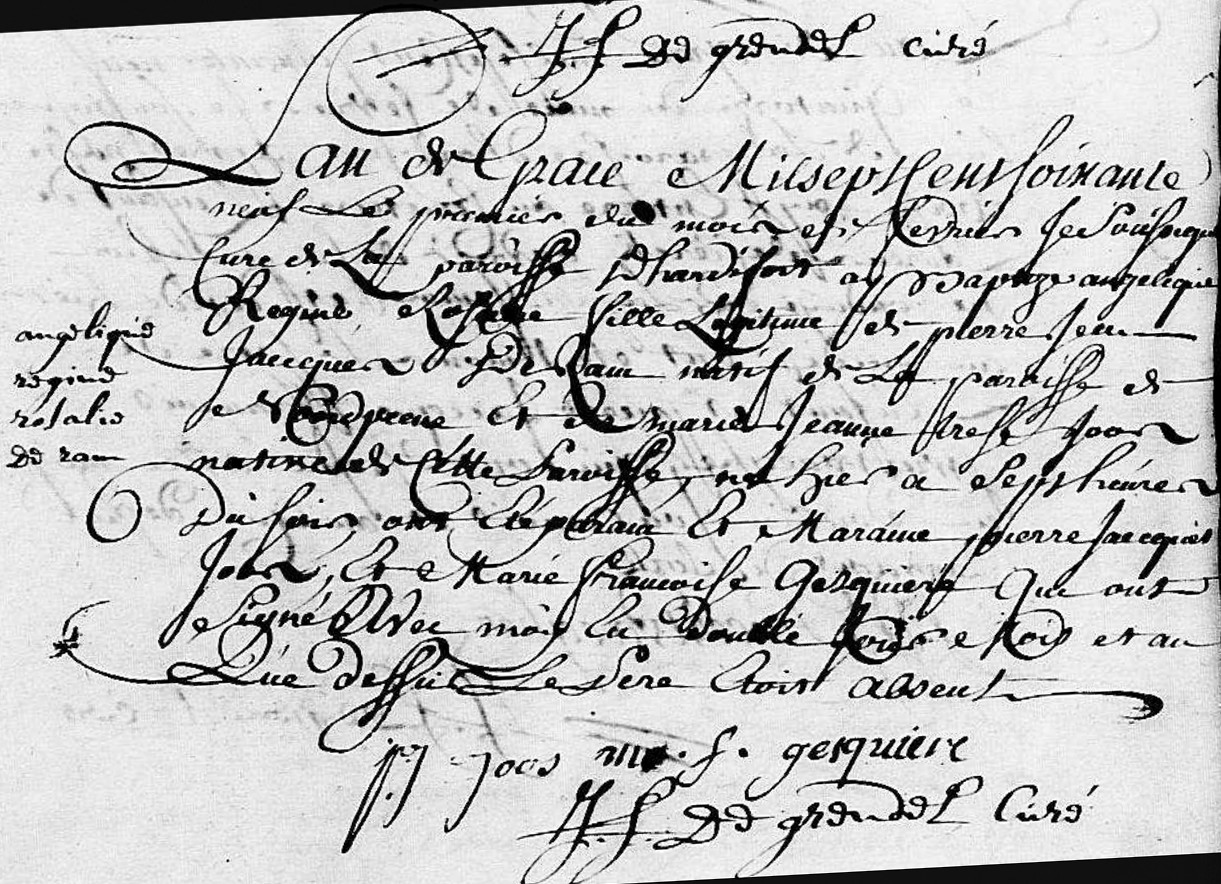 J. f. De grendel curé
Lan de Grace Mil sept Cent soixante
neuf Le premier du mois de fevrier Je Soussigné
Curé de La paroisse d'hardifort ai Baptizé angelique
Regine Rosalie fille Legitime de pierre Jean
angelique
regine
rosalie
De ram
Jacques De Ram natif de La paroisse de
et de marie Jeanne Joos
native de Cette Paroisse, né hier a Sept heures
Du soir, ont Eté parain Et Maraine pierre Jacques
Joos, Et Marie françoise Gesquiere Qui ont
Signé Avec moi Ce Double Jour Mois et an
Que dessus Le Pere Etoit absent
p j Joos m. f. gesquiere
J. f. De grendel Curé